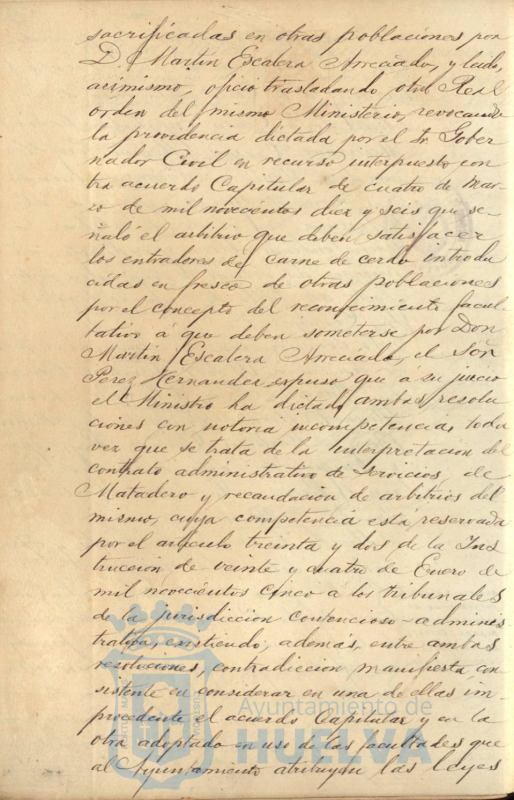 sacrificadas en otras poblaciones por
D. Martín Escalera Arreciado, y leido,
asimismo, oficio trasladando otra Real
orden del mismo Ministerio, revocando
la providencia dictada por el Sr Gober
nador Civil en recurso interpuesto con
tra acuerdo Capitular de cuatro de Mar
zo de mil novecientos diez y seis que se
ñaló el arbitrio que deben satisfacer
los entradores de carne de cerdo introdu
cidas en fresco de otras poblaciones
por el concepto del reconocimiento facul
tativo á que deben someterse por Don
Martín Escalera Arreciado, el Señor
Perez Hernandez expuso que á su juicio
el Ministro ha dictado ambas resolu
ciones con notoria incompetencia, toda
vez que se trata de la interpretacion del
contrato administrativo de Servicios de
Matadero y recaudacion de arbitrios del
mismo, cuya competencia está reservada
por el articulo treinta y dos de la Ins
truccion de veinte y cuatro de Enero de
mil novecientos cinco a los tribunales
de la jurisdiccion contencioso-adminis
trativa, existiendo, además, entre ambas
resoluciones, contradiccion manifiesta, con
sistente en considerar en una de ellas im
procedente el acuerdo Capitular y en la
otra adoptado en uso de las facultades que
al Ayuntamiento atribuyen las leyes
Ayuntamiento de
HUELVA